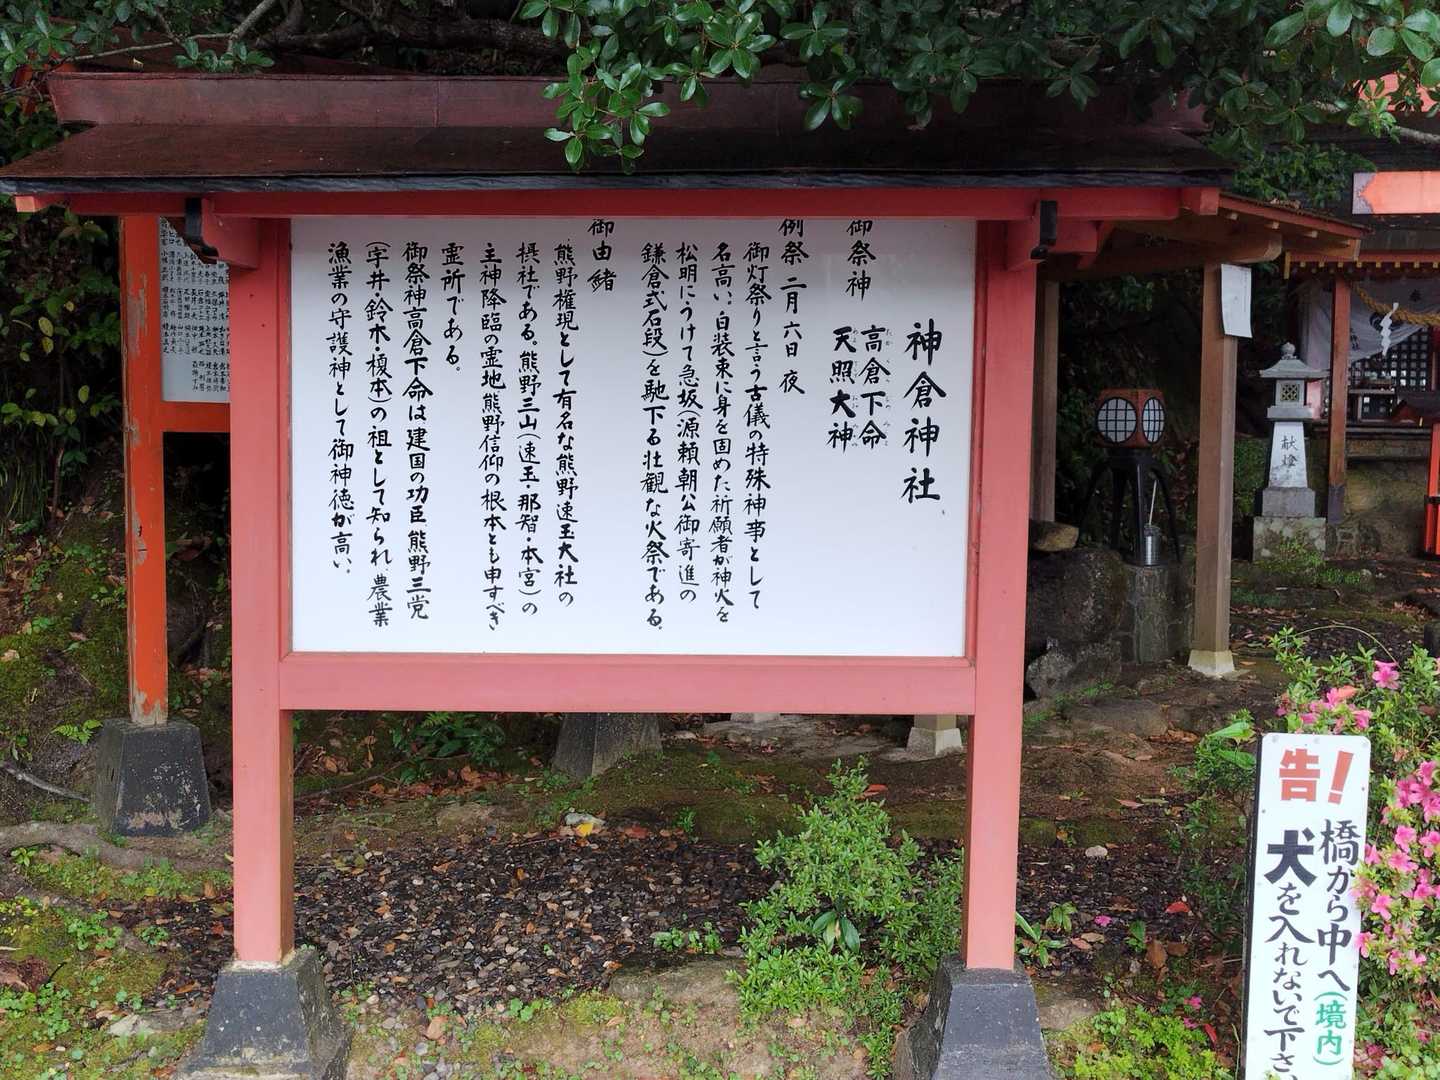 神倉神社
御祭神
高倉下命
天照大神
例祭 二月六日 夜
御灯祭りと言う古儀の特殊神事として
名高い。白装束に身を固めた祈願者が神火を
松明にうけて急坂(源頼朝公御寄進の
鎌倉式石段)を馳下る壮観な火祭である。
御由緒
熊野権現として有名な熊野速玉大社の
摂社である。熊野三山(速玉・那智・本宮)の
主神降臨の霊地熊野信仰の根本とも申すべき
霊所である。
御祭神高倉下命は建国の功臣、熊野三党
(宇井・鈴木・榎本)の祖として知られ、農業
漁業の守護神として御神徳が高い。
献燈
告!
橋から中へ(境内)
犬を入れないで下さい